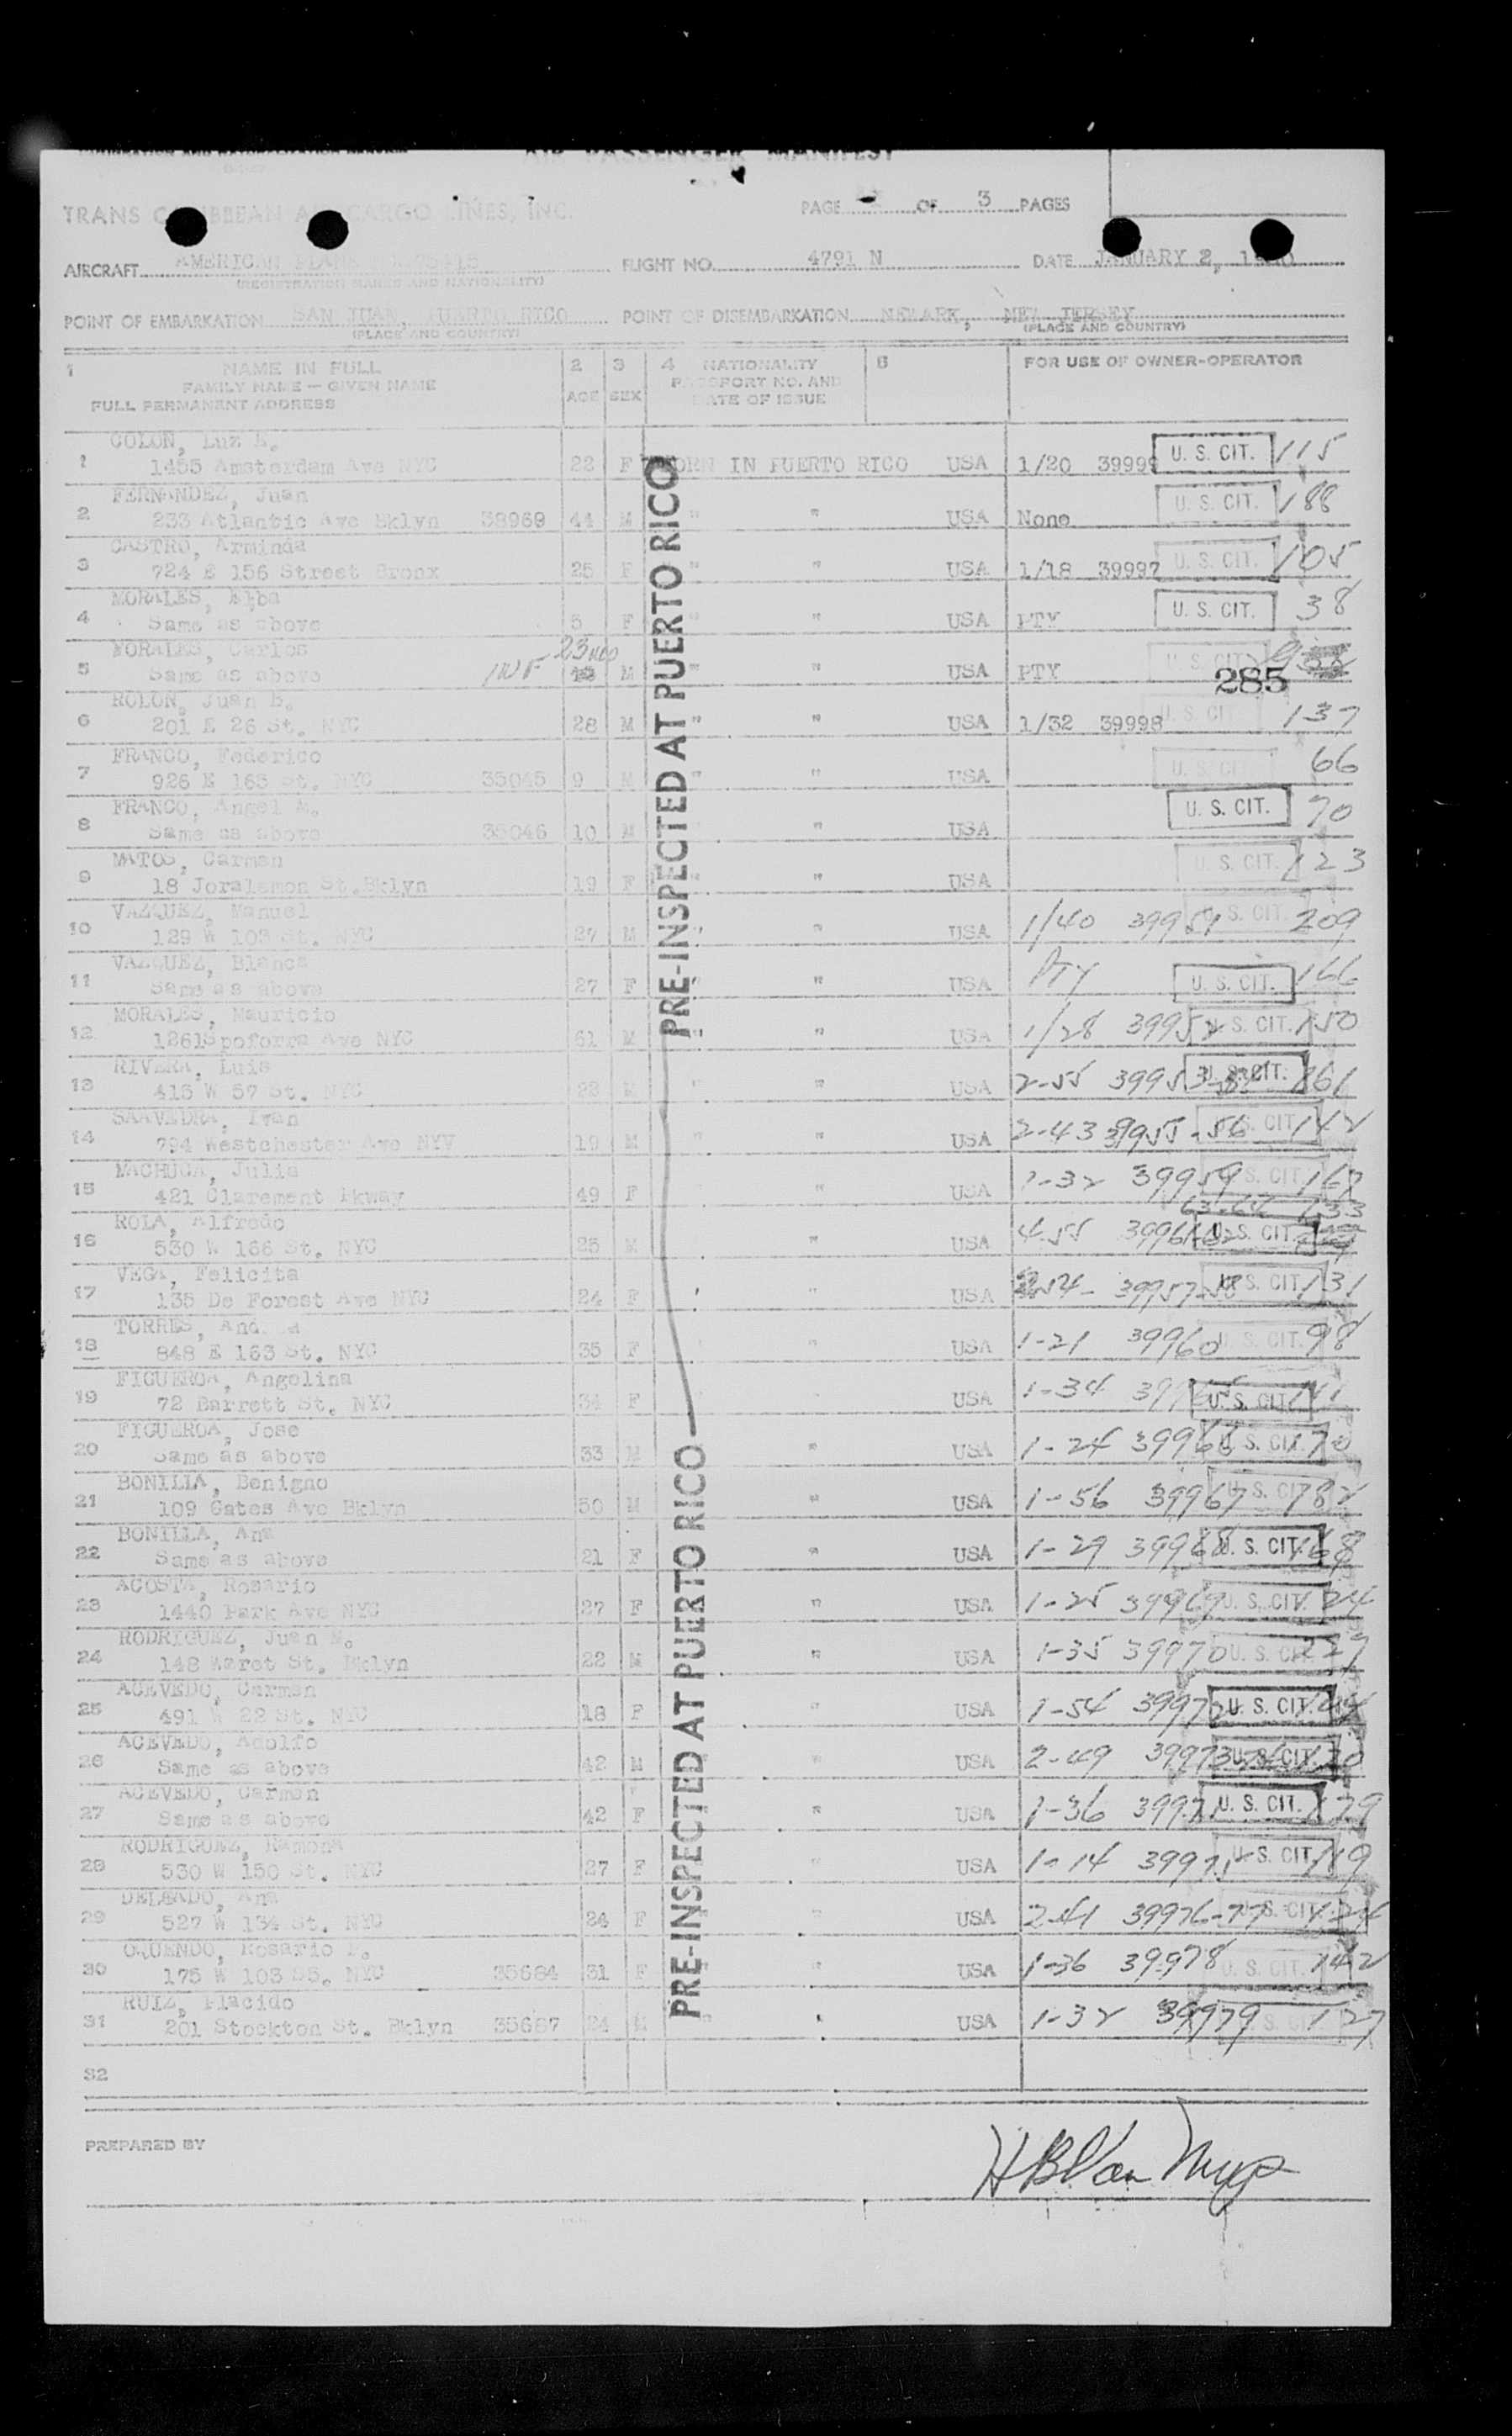 AIR PASSENGER MANIFEST
TRANS CARIBBEAN AIR CARGO LINES, INC.
PAGE OF 3 PAGES
AIRCRAFT AMERICAN FLIGHT NO. 4791 N DATE JANUARY 2,
(REGISTRATION MARKS AND NATIONALITY)
POINT OF EMBARKATION SAN JUAN, PUERTO RICO POINT OF DISEMBARKATION NEWARK, NEW JERSEY
(PLACE AND COUNTRY) (PLACE AND COUNTRY)
1 NAME IN FULL 2 3 4 NATIONALITY 5 FOR USE OF OWNER-OPERATOR
FAMILY NAME — GIVEN NAME AGE SEX PASSPORT NO. AND
FULL PERMANENT ADDRESS DATE OF ISSUE
PRE-INSPECTED AT PUERTO RICO
PRE-INSPECTED AT PUERTO RICO
COLON, Luz E.
1 1455 Amsterdam Ave NYC 22 F BORN IN PUERTO RICO USA 1/20 39999 U. S. CIT. 115
FERNANDEZ, Juan
2 233 Atlantic Ave Bklyn 38969 44 M " " USA None U. S. CIT. 188
CASTRO, Arminda
3 724 E 156 Street Bronx 25 F " " USA 1/18 39997 U. S. CIT. 105
MORALES, Elba
4 Same as above 5 F " " USA PTY U. S. CIT. 38
MORALES, Carlos
5 Same as above INF 23 M " " USA PTY U. S. CIT.
285
ROLON, Juan B.
6 201 E 26 St. NYC 28 M " " USA 1/32 39998 U. S. CIT. 137
FRANCO, Federico
7 926 E 163 St. NYC 35045 9 M " " USA U. S. CIT. 66
FRANCO, Angel M.
8 Same as above 35046 10 M " USA U. S. CIT. 70
MATOS, Carmen
9 18 Joralemon St. Bklyn 19 F " " USA U. S. CIT. 123
VAZQUEZ, Manuel
10 129 W 103 St. NYC 27 M " " USA 1/40 39951 U. S. CIT. 209
VAZQUEZ, Blanca
11 Same as above 27 F " " USA PTY U. S. CIT. 166
MORALES, Mauricio
12 1261Spoforra Ave NYC 61 M " " USA 1/28 39952 U. S. CIT. 150
RIVERA, Luis
13 415 W 57 St. NYC 23 M " " USA 2-55 39953 U. S. CIT. 161
SAAVEDRA, Ivan
14 794 Westchester Ave NYV 19 M " " USA 2-43 39955-56 U. S. CIT. 142
MACHUCA, Julia
15 421 Clarement Pkway 49 F " USA 1-32 39959 U. S. CIT. 167
63-64 133
ROLA, Alfredo
16 530 W 166 St. NYC 25 M " USA 4-55 39961-62 U. S. CIT.
VEGA, Felicita
17 135 De Forest Ave NYC 24 F " USA 39957-58 U. S. CIT. 131
TORRES,
18 848 E 163 St. NYC 35 F " USA 1-21 39960 U. S. CIT. 98
FIGUEROA, Angelina
19 72 Barrett St. NYC 34 F USA 1-34 U. S. CIT.
FIGUEROA, Jose
20 Same as above 33 M " USA 1-24 39966 U. S. CIT. 170
BONILLA, Benigno
21 109 Gates Ave Bklyn 50 M " USA 1-56 39967 U. S. CIT. 182
BONILLA, Ana
22 Same as above 21 F " USA 1-29 39968 U. S. CIT. 168
ACOSTA, Rosario
23 1440 Park Ave NYC 27 F " USA 1-25 39969 U. S. CIT. 124
RODRIGUEZ, Juan
24 148 St. Bklyn 22 M " USA 1-35 39970 U. S. CIT.
ACEVEDO, Carmen
25 491 W 22 St. NYC 18 F " USA 1-54 39972 U. S. CIT.
ACEVEDO, Adolfo
26 Same as above 42 M " USA 2-49 39973 U. S. CIT.
ACEVEDO, Carmen
27 Same as above 42 F " USA 1-36 39971 U. S. CIT. 129
RODRIGUEZ, Ramona
28 530 W 150 St. NYC 27 F " USA 1-14 39975 U. S. CIT. 119
DELGADO, Ana
29 527 W 134 St. NYC 24 F " " USA 2-41 39976-77 U. S. CIT. 124
OQUENDO, Rosario
30 175 W 103 St. NYC 35684 31 F " " USA 1-36 39978 U. S. CIT. 142
RUIZ, Placido
31 201 Stockton St. Bklyn 35687 24 M " " USA 1-32 39979 U. S. CIT. 127
32
PREPARED BY